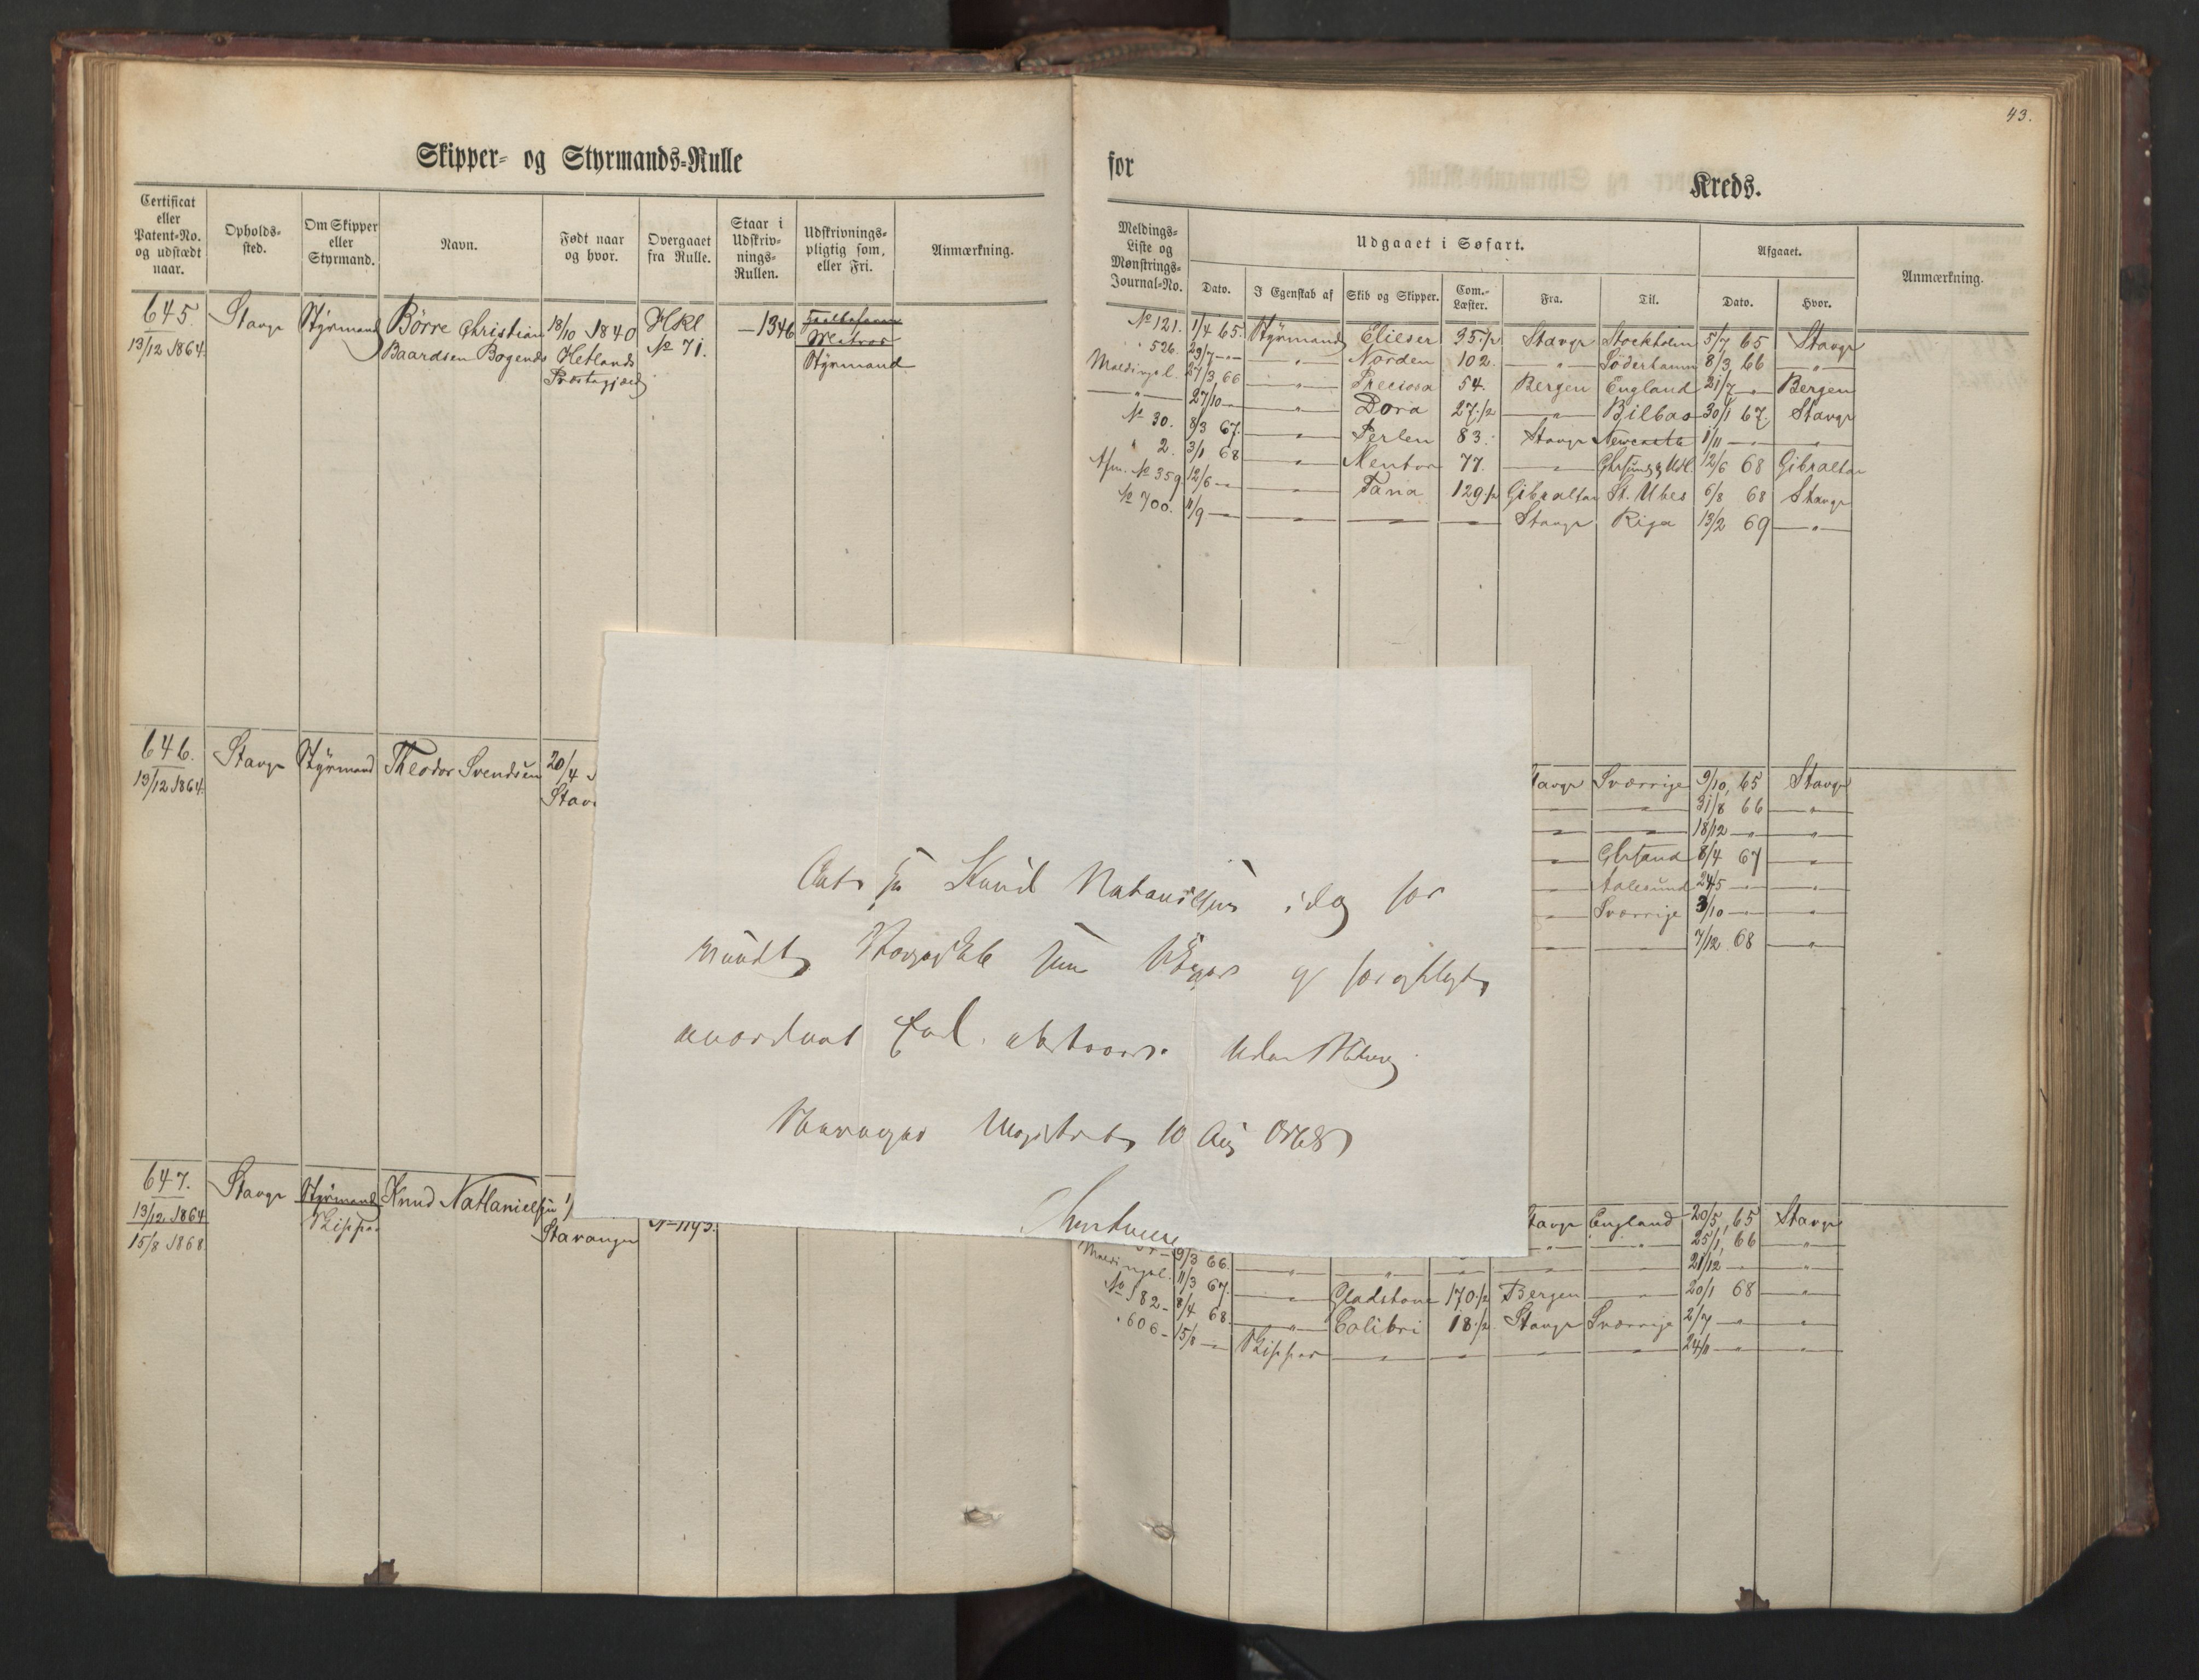 43.
Skipper- og Styrmands-Rulle
for
Kreds.
Certificat eller Patent-No. og udstædt naar.
Opholds-sted.
Om Skipper eller Styrmand.
Navn.
Født naar og hvor.
Overgaaet fra Rulle.
Staar i Udskriv-nings-Rullen.
Udskrivnings-pligtig som, eller Fri.
Anmærkning.
Meldings-Liste og Mønstrings-Journal-No.
Udgaaet i Søfart.
Afgaaet.
Anmærkning.
Dato.
I Egenskab af
Skib og Skipper.
Com.-Læster.
Fra.
Til.
Dato.
Hvor.
645. Stavgr Styrmand Børre Christian 18/10 1840 Hkl — 1346
13/12 1864. Baardsen Bogene Hetlands No 71. Matros
Præstegjæld Styrmand
No 121. 1/4 65. Styrmand Elieser 35 1/2 Stavgr Stockholm 5/7 65 Stavgr
" 526. 29/7 — " — " — Norden 102. — " — Söderhamn 8/3 66 — " —
Meldingsl. 27/3 66 — " — Preciosa 54. Bergen England 21/7 — " Bergen
— " — 27/10 — — " — Dora 27 1/2 — " — Bilbao 30/1 67. Stavgr
No 30. 8/3 67. — " — Perlen 83. Stavgr Newcastle 1/11 — — " —
" 2. 3/1 68 — " — Mentor 77. — " — 12/6 68 Gibraltar
Afm. No 359. 12/6 — — " — Tana 129 1/2 Gibraltar St. Ubes 6/8 68 Stavgr
No 700. 11/9 — — " — — " — — " — Stavgr Riga 13/2 69 — " —
646. Stavgr Styrmand Theodor Svendsen 20/4
13/12 1864. Stav
tavgr Sverrige 9/10 65 Stavgr
— " — — " — 31/8 66 — " —
— " — — " — 18/12 — " — — " —
— " — Chrsand 8/4 67 — " —
— " — Aalesund 24/5 — " — — " —
— " — Sverrige 3/10 — " — — " —
— " — — " — 7/12 68 — " —
Knud Natanielsen idag for
Stavanger Magistrat, 10 Aug 1868
647. Stavgr Styrmand Knud Nathanielsen
13/12 1864 Skipper Stavanger No 1195.
15/8 1868.
tavgr England 20/5 65 Stavgr
— " — — " — 25/1 66 — " —
9/3 66. — " — — " — — " — — " — — " — 21/12 — " — — " —
Meldingsl. 11/3 67. — " — Gladstone 170 1/2 Bergen — " — 20/1 68 — " —
No 182 - 8/4 68. — " — Colibri 18 1/2 Stavgr Sverrige 2/7 — " — — " —
" 606 - 15/8 — Skipper — " — — " — — " — — " — 24/11 — " — — " —